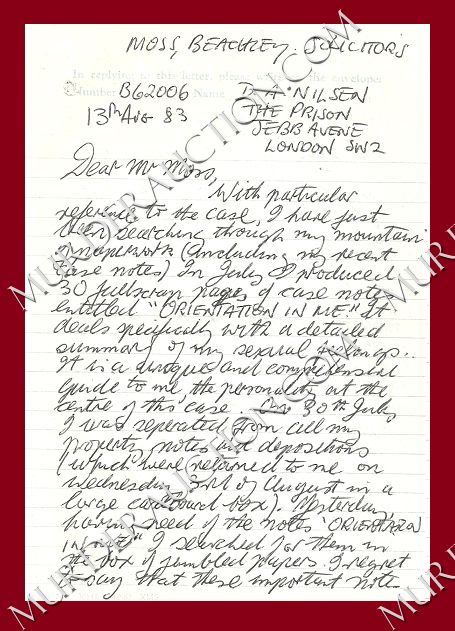 MOSS, BEACHLEY. SOLICITORS
In replying to this letter, please write on the envelope:
Number B62006 Name D.A. NILSEN
13th AUG 83 THE PRISON
JEBB AVENE
LONDON SW2
Dear Mr Moss,
With particular
reference to the case, I have just
been searching through my mountain
of paperwork (including my recent
case notes) In July I produced
30 fullscrap pages of case notes
entitled "ORIENTATION IN ME." It
deals specifically with a detailed
summary of my sexual feelings.
It is a unique and comprehensive
guide to me, the personality at the
centre of this case. On 30th July
I was seperated from all my
property, notes and depositions
(which were returned to me on
Wednesday 3rd of August in a
large cardboard box). Yesterday
having need of the notes 'ORIENTATION
IN ME" I searched for them in
the box of jumbled papers. I regret
to say that these important note
MURDERAUCTION.COM